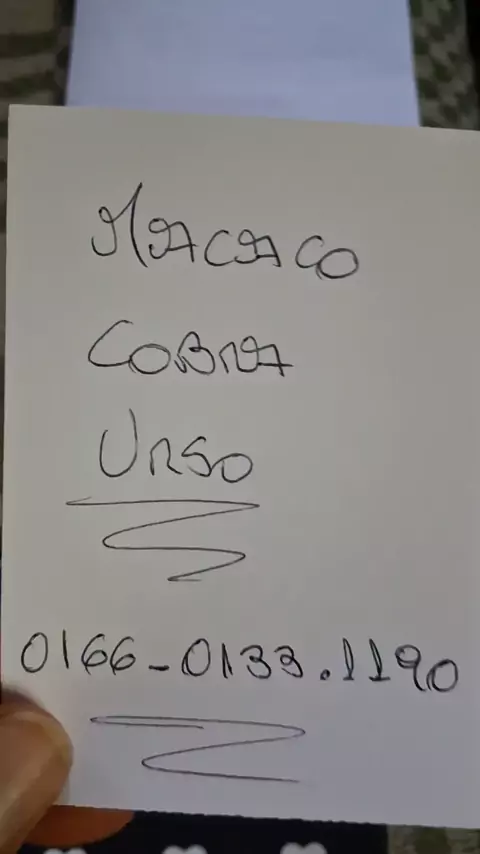 MACACO
COBRA
URSO
0166-0133.1190